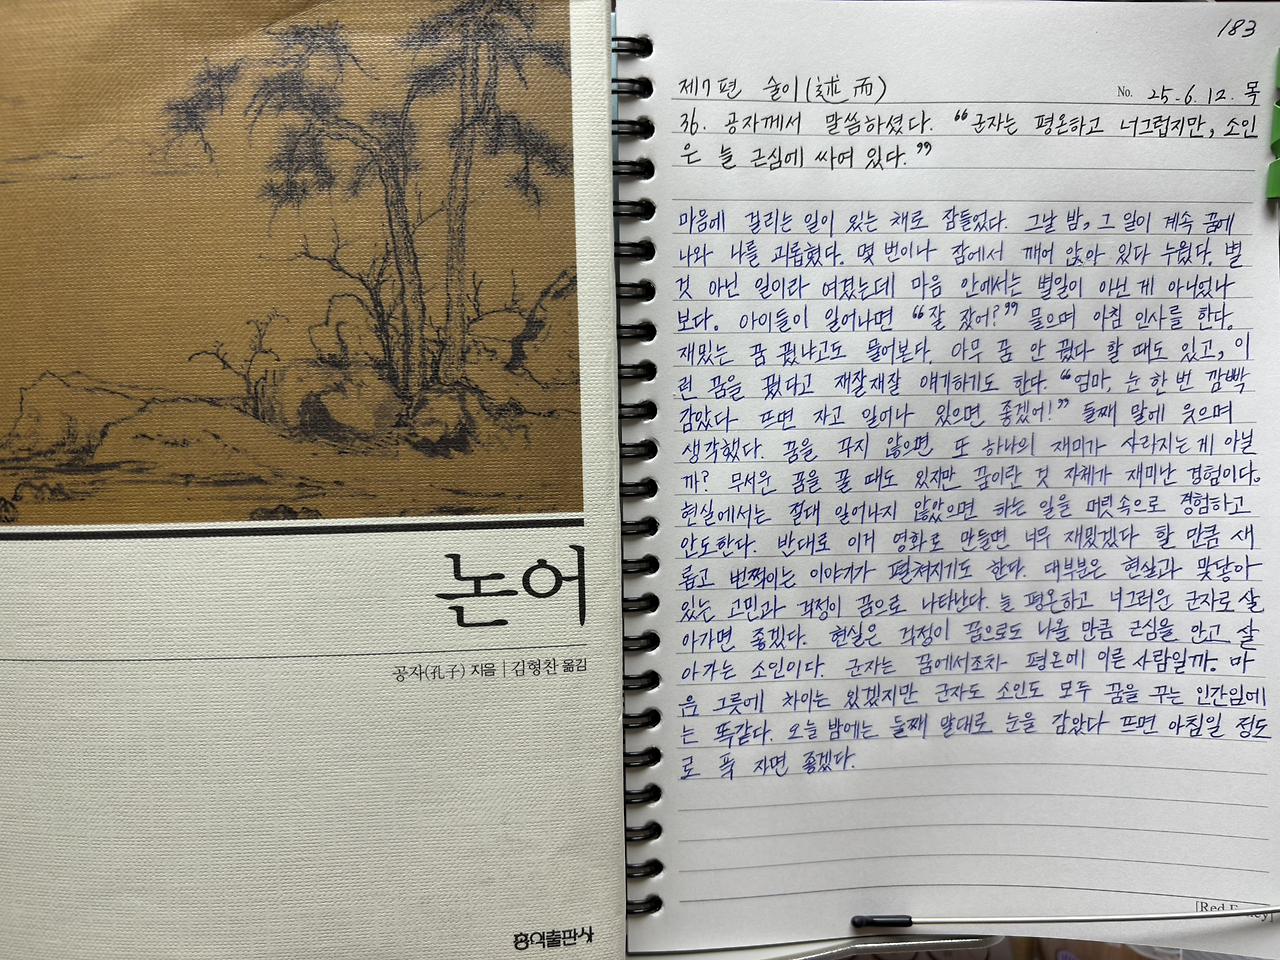 논어
공자(孔子) 지음 | 김형찬 옮김
홍익출판사
183
제7편 술이(述而)
No. 25. 6. 12. 목
36. 공자께서 말씀하셨다. "군자는 평온하고 너그럽지만, 소인
은 늘 근심에 싸여 있다."
마음에 걸리는 일이 있는 채로 잠들었다. 그날 밤, 그 일이 계속 꿈에
나와 나를 괴롭혔다. 몇 번이나 잠에서 깨어 앉아 있다 누웠다. 별
것 아닌 일이라 여겼는데 마음 안에서는 별일이 아닌 게 아니었나
보다. 아이들이 일어나면 "잘 잤어?" 물으며 아침 인사를 한다.
재밌는 꿈 꿨냐고도 물어본다. 아무 꿈 안 꿨다 할 때도 있고, 이
런 꿈을 꿨다고 재잘재잘 얘기하기도 한다. "엄마, 눈 한 번 깜빡
감았다 뜨면 자고 일어나 있으면 좋겠어!" 둘째 말에 웃으며
생각했다. 꿈을 꾸지 않으면 또 하나의 재미가 사라지는 게 아닐
까? 무서운 꿈을 꿀 때도 있지만 꿈이란 것 자체가 재미난 경험이다.
현실에서는 절대 일어나지 않았으면 하는 일을 머릿속으로 경험하고
안도한다. 반대로 이거 영화로 만들면 너무 재밌겠다 할 만큼 새
롭고 번쩍이는 이야기가 펼쳐지기도 한다. 대부분은 현실과 맞닿아
있는 고민과 걱정이 꿈으로 나타난다. 늘 평온하고 너그러운 군자로 살
아가면 좋겠다. 현실은 걱정이 꿈으로도 나올 만큼 근심을 안고 살
아가는 소인이다. 군자는 꿈에서조차 평온에 이른 사람일까. 마
음 그릇에 차이는 있겠지만 군자도 소인도 모두 꿈을 꾸는 인간임에
는 똑같다. 오늘 밤에는 둘째 말대로 눈을 감았다 뜨면 아침일 정도
로 푹 자면 좋겠다.